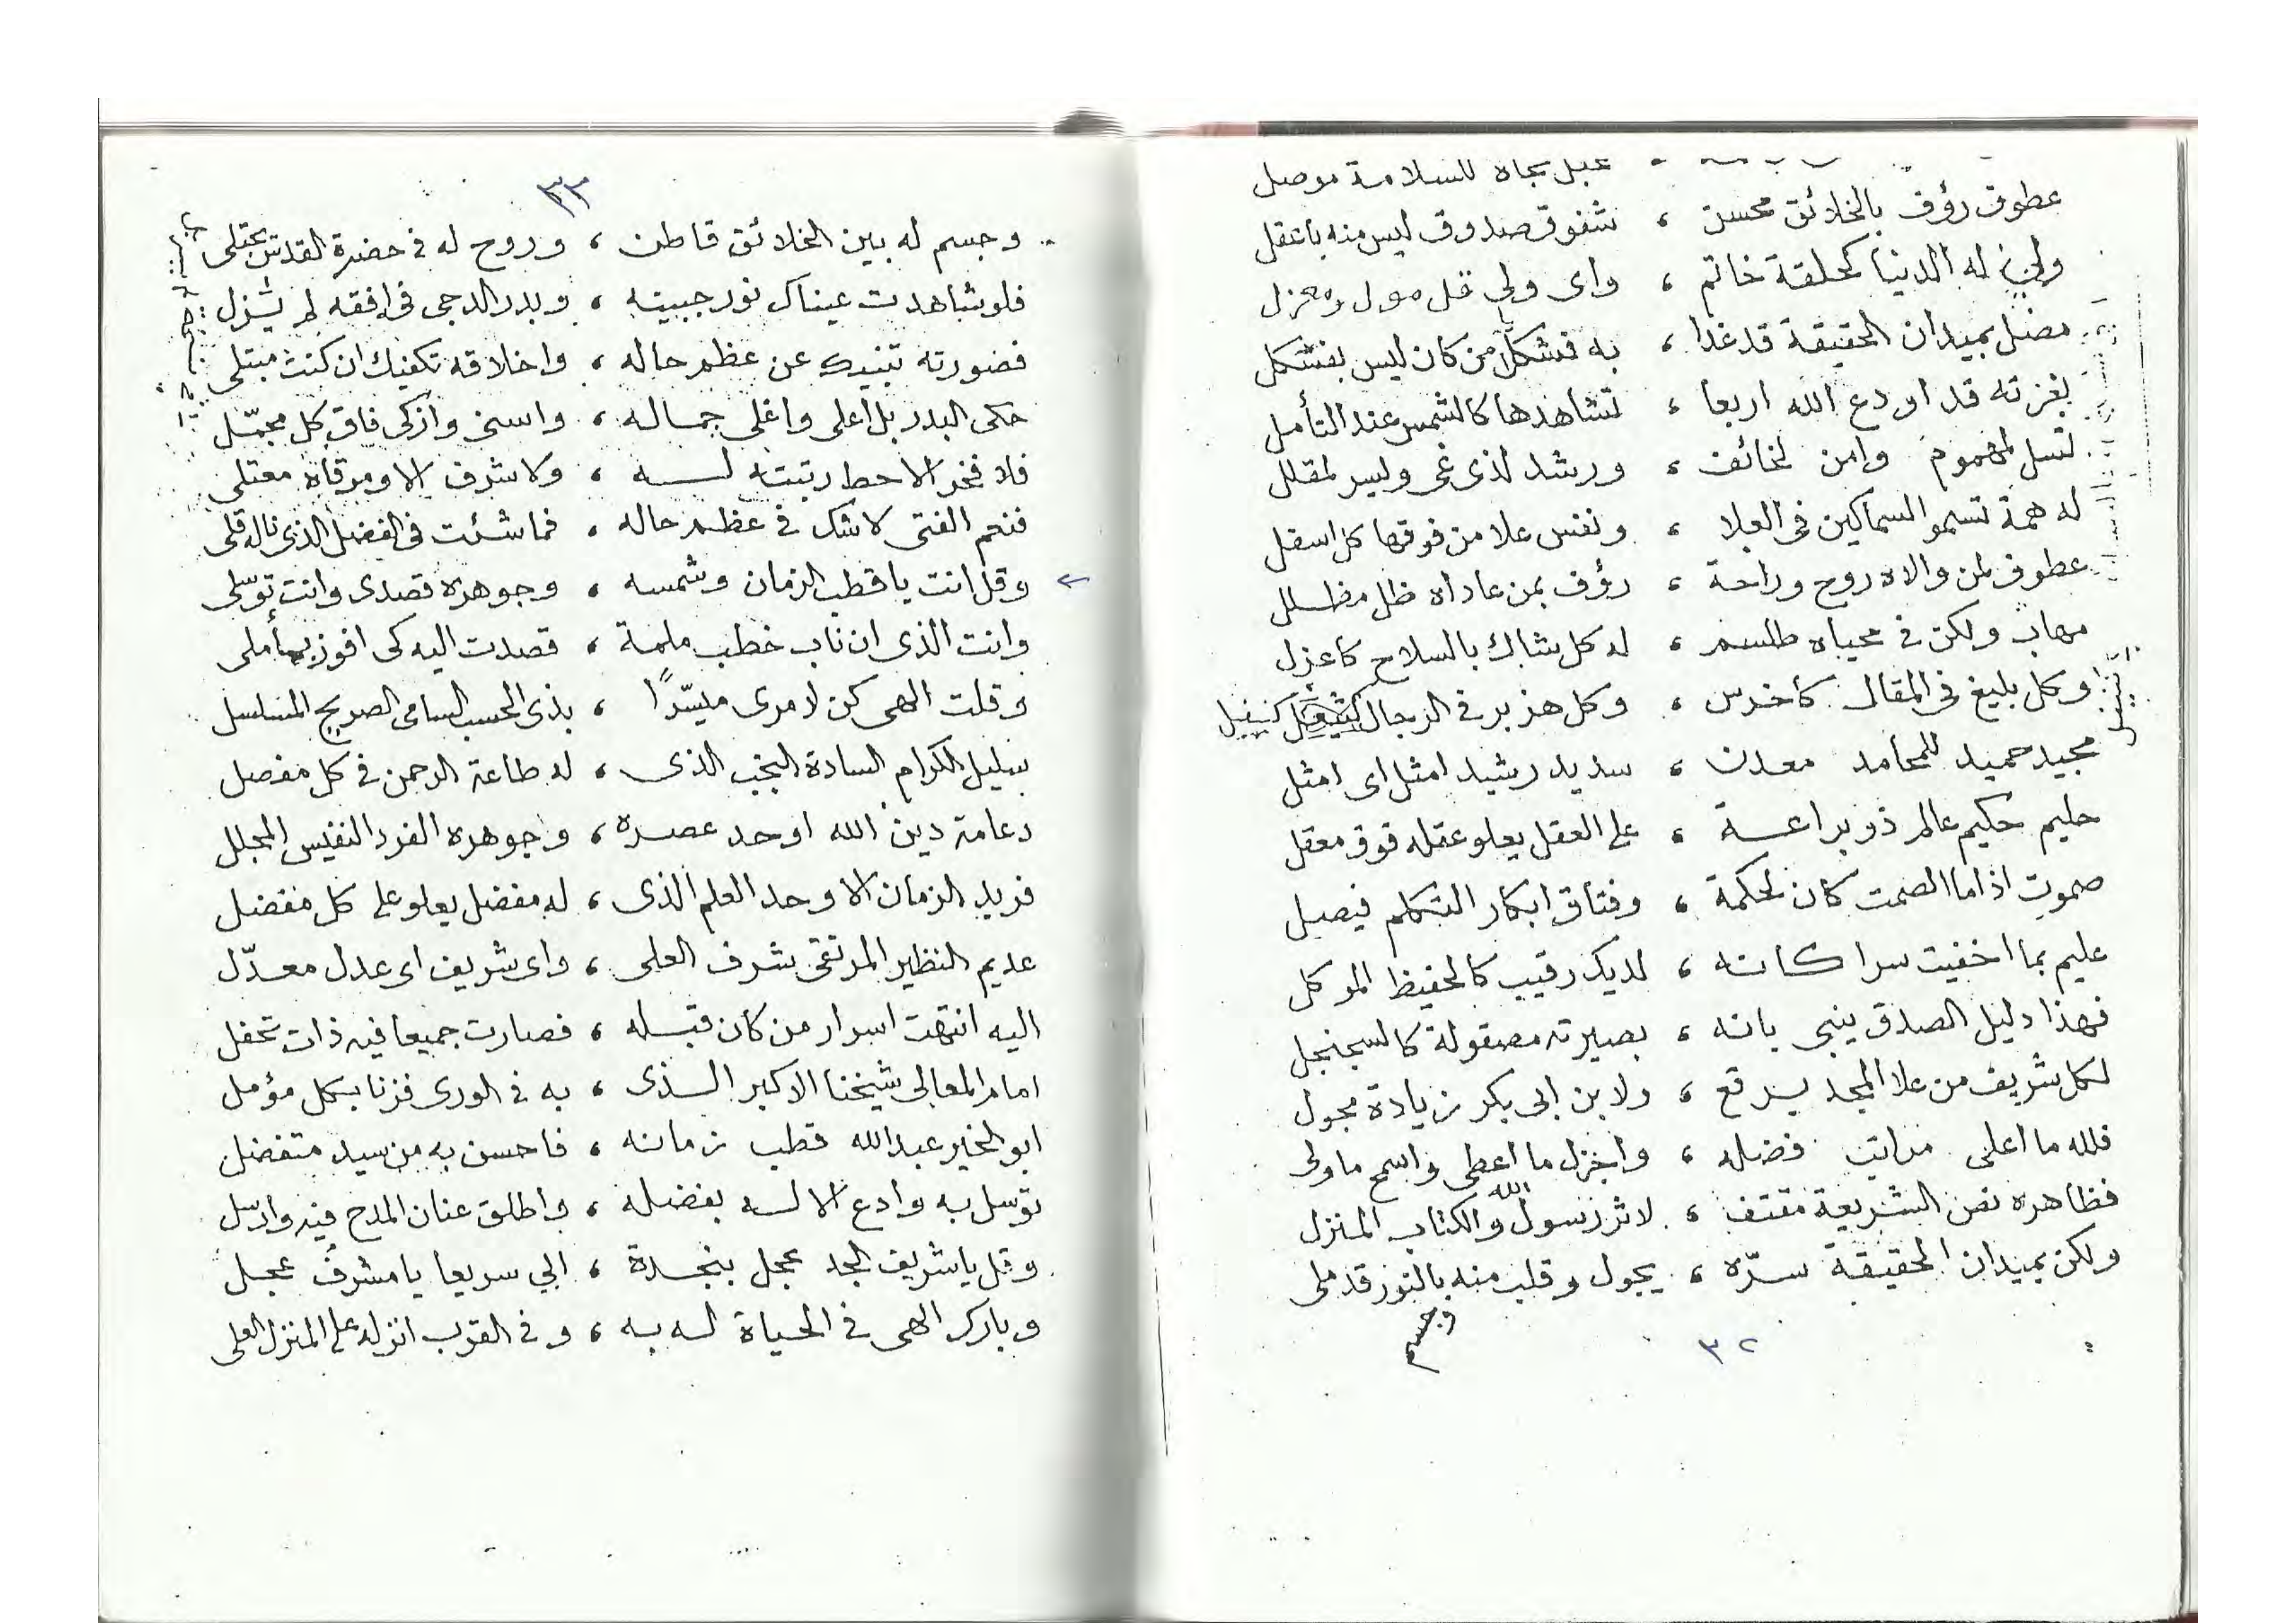 جاه للسلامة موصل
عطوف رؤف بالخلائق محسن ، شفوق صدوق ليس منه باثقل
ولي له الدنيا كحلقة خاتم ، واى ولي قل مول ومعزل
بميدان الحقيقة قد غدا ، به فشكل من كان ليس بمشكل
بغزته قد اودع الله اربعا ، تشاهدها كالشمس عند التأمل
تسل لمهموم وامن لخائف ، ورشد لذى غى ويسر لمقلل
له همة تسمو السماكين فى العلا ، ونفس علا من فوقها كل اسفل
عطوف لمن والاه روح وراحة ، رؤف بمن عاداه ظل مظلل
مهاب ولكن فى محياه طلسم ، له كل شاك بالسلاح كاعزل
وكل بليغ فى المقال كأخرس ، وكل هذبر فى الرجال
مجيد حميد للمحامد معدن ، سديد رشيد امثل اى امثل
حليم حكيم عالم ذو براعة ، على العقل يعلو عقله فوق معقل
صموت اذا ما الصمت كان لحكمة ، وفتاق ابكار التكلم فيصل
عليم بما اخفيت سرا كانه ، لديك رقيب كالحفيظ الموكل
فهذا دليل الصدق ينبى بانه ، بصيرته مصقولة كالسجنجل
لكل شريف من علا المجد يرقع ، ولابن ابى بكر زيادة مجول
فلله ما اعلى مراتب فضله ، واجزل ما اعطى واسمح ما ولى
فظاهره نص الشريعة مقتف ، لاثر رسول الله والكتاب المنزل
ولكن بميدان الحقيقة سرّه ، يجول وقلب منه بالنور قد ملى
وجسم
٣٢
٣٣
وجسم له بين الخلائق قاطن ، وروح له فى حضرة القدس تجتلى
فلو شاهدت عيناك نور جبينه ، وبدر الدجى فى افقه لم يتنزل
فصورته تنبيك عن عظم حاله ، واخلاقه تكفيك ان كنت مبتلى
حكى البدر بل اعلى واغلى جماله ، واسنى وازكى فاق كل مجمّل
فلا فخر الا حط رتبته له ، ولا شرف الا ومرقاه معتلى
فنعم الفتى لا شك فى عظم حاله ، فما شئت فى الفضل الذى ناله قلى
وقل انت يا قطب الزمان وشمسه ، وجوهره قصدى وانت توسلى
وانت الذى ان ناب خطب ملمة ، قصدت اليه كى افوز بمأملى
وقلت الهى كن لامرى ميسّرًا ، بذى الحسب السامى الصريح المسلسل
سليل الكرام السادة النجب الذى ، له طاعة الرحمن فى كل مفصل
دعامة دين الله اوحد عصره ، وجوهره الفرد النفيس المجلل
فريد الزمان الاوحد العلم الذى ، له مفضل يعلو على كل مفضل
عديم النظير المرتقى شرف العلى ، واى شريف اى عدل معدّل
اليه انتهت اسرار من كان قبله ، فصارت جميعا فيه ذات تحفل
امام المعالى شيخنا الاكبر الذى ، به فى الورى فزنا بكل مؤمل
ابو الخير عبد الله قطب زمانه ، فاحسن به من سيد متفضل
توسل به وادع الاله بفضله ، واطلق عنان المدح فيه وارسل
وقل يا شريف الجد عجل بنجدة ، الي سريعا يا مشرف عجل
وبارك الهى فى الحياة له به ، وفى القرب انزله على المنزل العلى